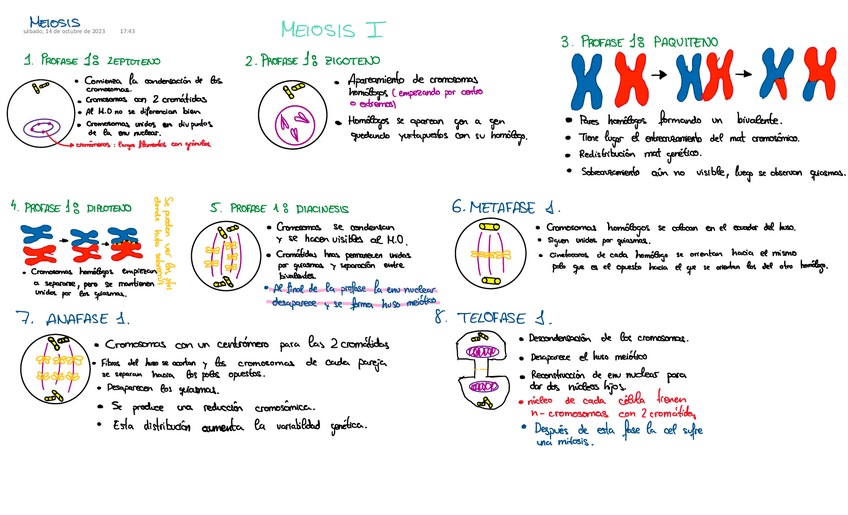 MEIOSIS
sábado, 14 de octubre de 2023 17:43
MEIOSIS I
1. PROFASE 1: LEPTOTENO
• Comienza la condensación de los
cromosomas.
• Cromosomas con 2 cromátidas
• Al M.O no se diferencian bien
• Cromosomas unidos en div puntos
de la env nuclear.
cromómeros: largos filamentos con gránulos
2. PROFASE 1: ZIGOTENO
• Apareamiento de cromosomas
homólogos (empezando por centro
o extremos)
• Homólogos se aparean gen a gen
quedando yuxtapuestos con su homólogo.
3. PROFASE 1: PAQUITENO
• Pares homólogos formando un bivalente.
• Tiene lugar el entrecruzamiento del mat cromosómico.
• Redistribución mat genético.
• Sobrecruzamiento aún no visible, luego se observan quiasmas.
4. PROFASE 1: DIPLOTENO
Se pueden ver los
donde hubo
• Cromosomas homólogos empiezan
a separarse, pero se mantienen
unidos por los quiasmas.
5. PROFASE 1: DIACINESIS
• Cromosomas se condensan
y se hacen visibles al M.O.
• Cromátidas hnas permanecen unidas
por quiasmas y separación entre
bivalentes.
• Al final de la profase la env nuclear
desaparece y se forma huso meiótico.
6. METAFASE 1.
• Cromosomas homólogos se colocan en el ecuador del huso.
• Siguen unidos por quiasmas.
• Cinetocoros de cada homólogo se orientan hacia el mismo
polo que es el opuesto hacia el que se orientan los del otro homólogo.
7. ANAFASE 1.
• Cromosomas con un centrómero para las 2 cromátidas
• Fibras del huso se acortan y los cromosomas de cada pareja
se separan hacia los polos opuestos.
• Desaparecen los quiasmas.
• Se produce una reducción cromosómica.
• Esta distribución aumenta la variabilidad genética.
8. TELOFASE 1.
• Descondensación de los cromosomas.
• Desaparece el huso meiótico
• Reconstrucción de env nuclear para
dar dos núcleos hijos.
• núcleo de cada célula tienen
n-cromosomas con 2 cromátidas
• Después de esta fase la cel sufre
una mitosis.